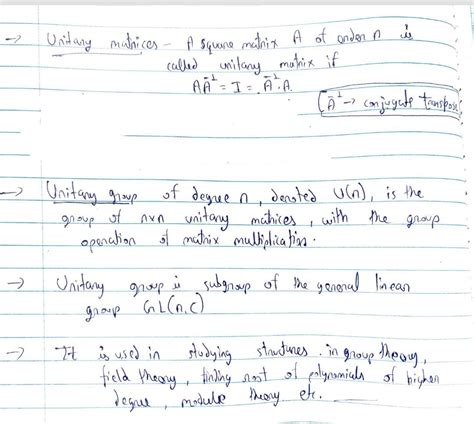 → Unitary matrices - A square matrix A of order n is
called unitary matrix if
AĀ¹ = I = Ā¹.A.
[Ā¹ → conjugate transpose
→ Unitary group of degree n, denoted U(n), is the
group of nxn unitary matrices, with the group
operation of matrix multiplication.
→ Unitary group is subgroup of the general linear
group GL(n,C)
→ It is used in studying structures. in group theory,
field theory, finding root of polynomials of higher
degree, module theory etc.